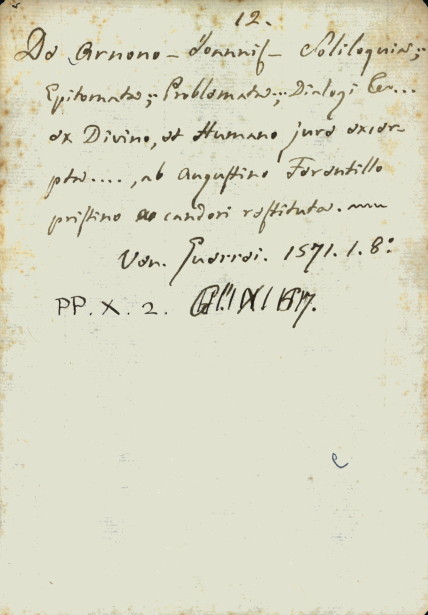 12.
De Arnono - Joannis - Soliloquia;;
Epitomata;; Problemata;; Dialogi
ex Divino, et Humano jure excer-
pta...., ab Augustino Ferentillo
pristino candori restituta.
Ven. Guerrei. 1571. 1. 8:
PP. X. 2.